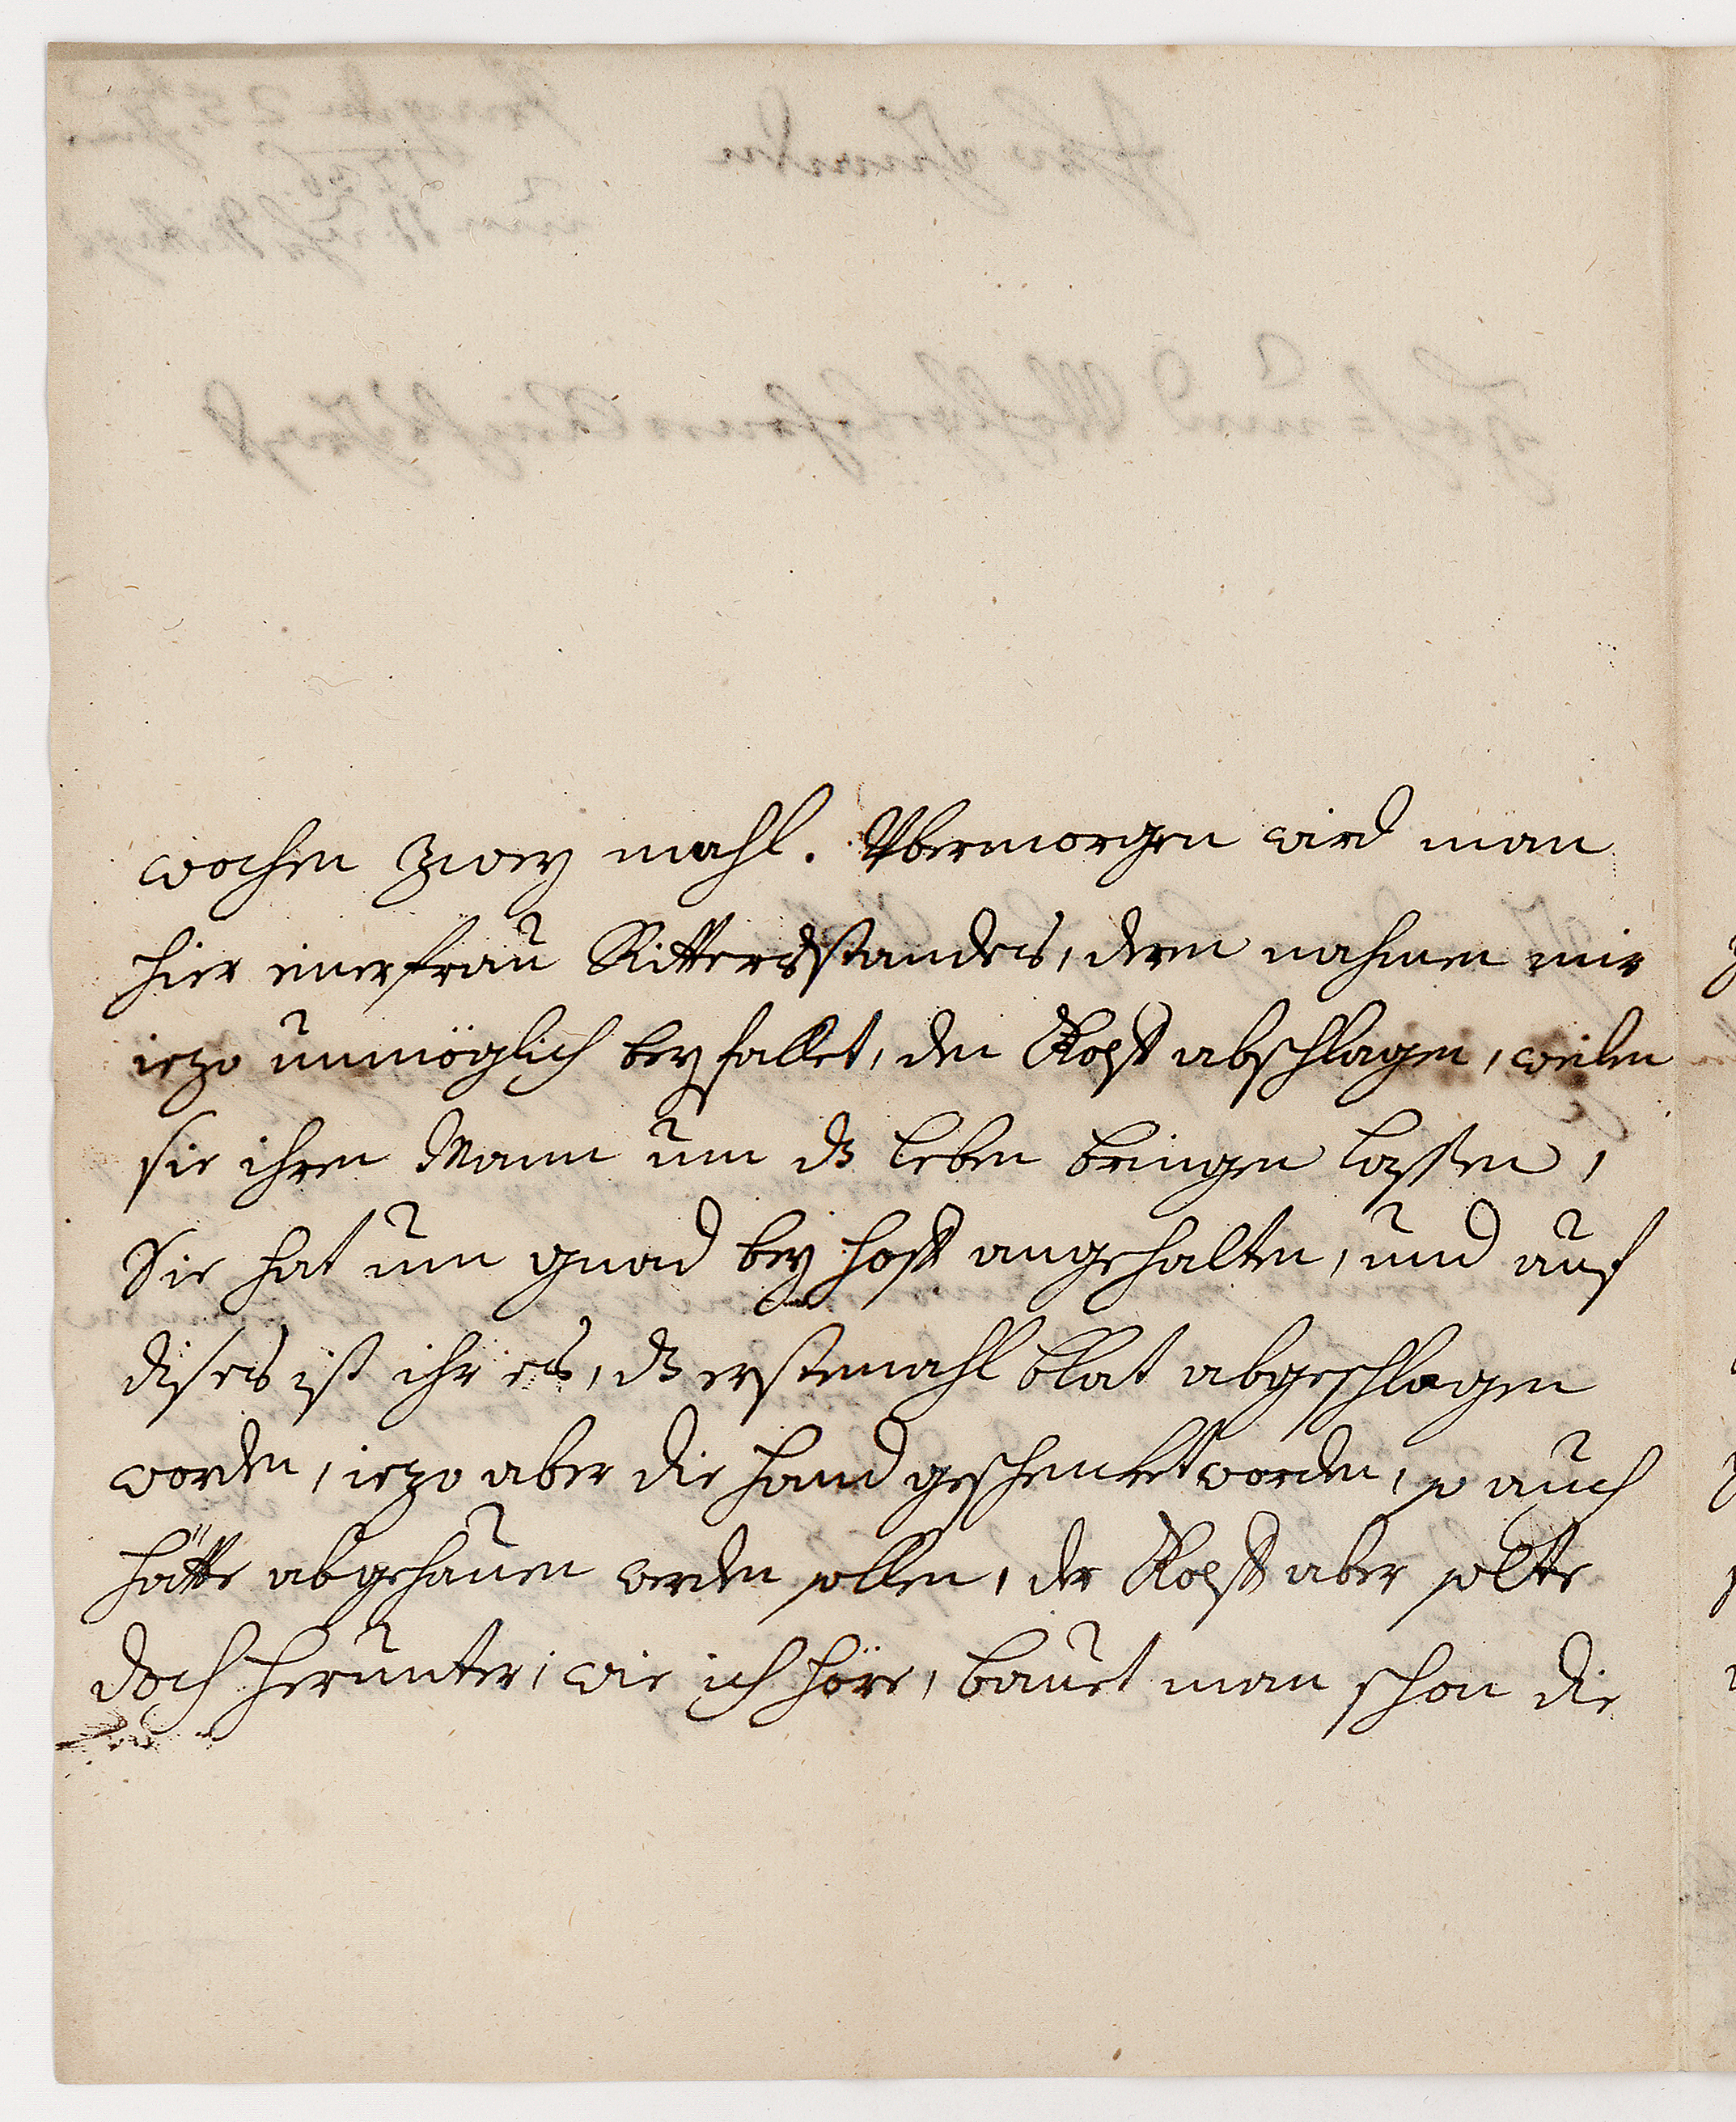 wochen zwey mahl. Ybermorgen wird man
hier einer frau Rittersstandes, deren nahmen mir
iezo unmöglich beyfallet, den Kopff abschlagen, weilen
sie ihren Mann um dz leben bringen lassen,
Sie hat um gnad bey hoff angehalten, und auf
dises ist ihr es, dz erstemahl blat abgeschlagen
worden, iezo aber die hand geschencket worden, so auch
hätte abgehauen werden sollen, der Kopff aber solte
doch herunter, wie ich höre, bauet man schon die